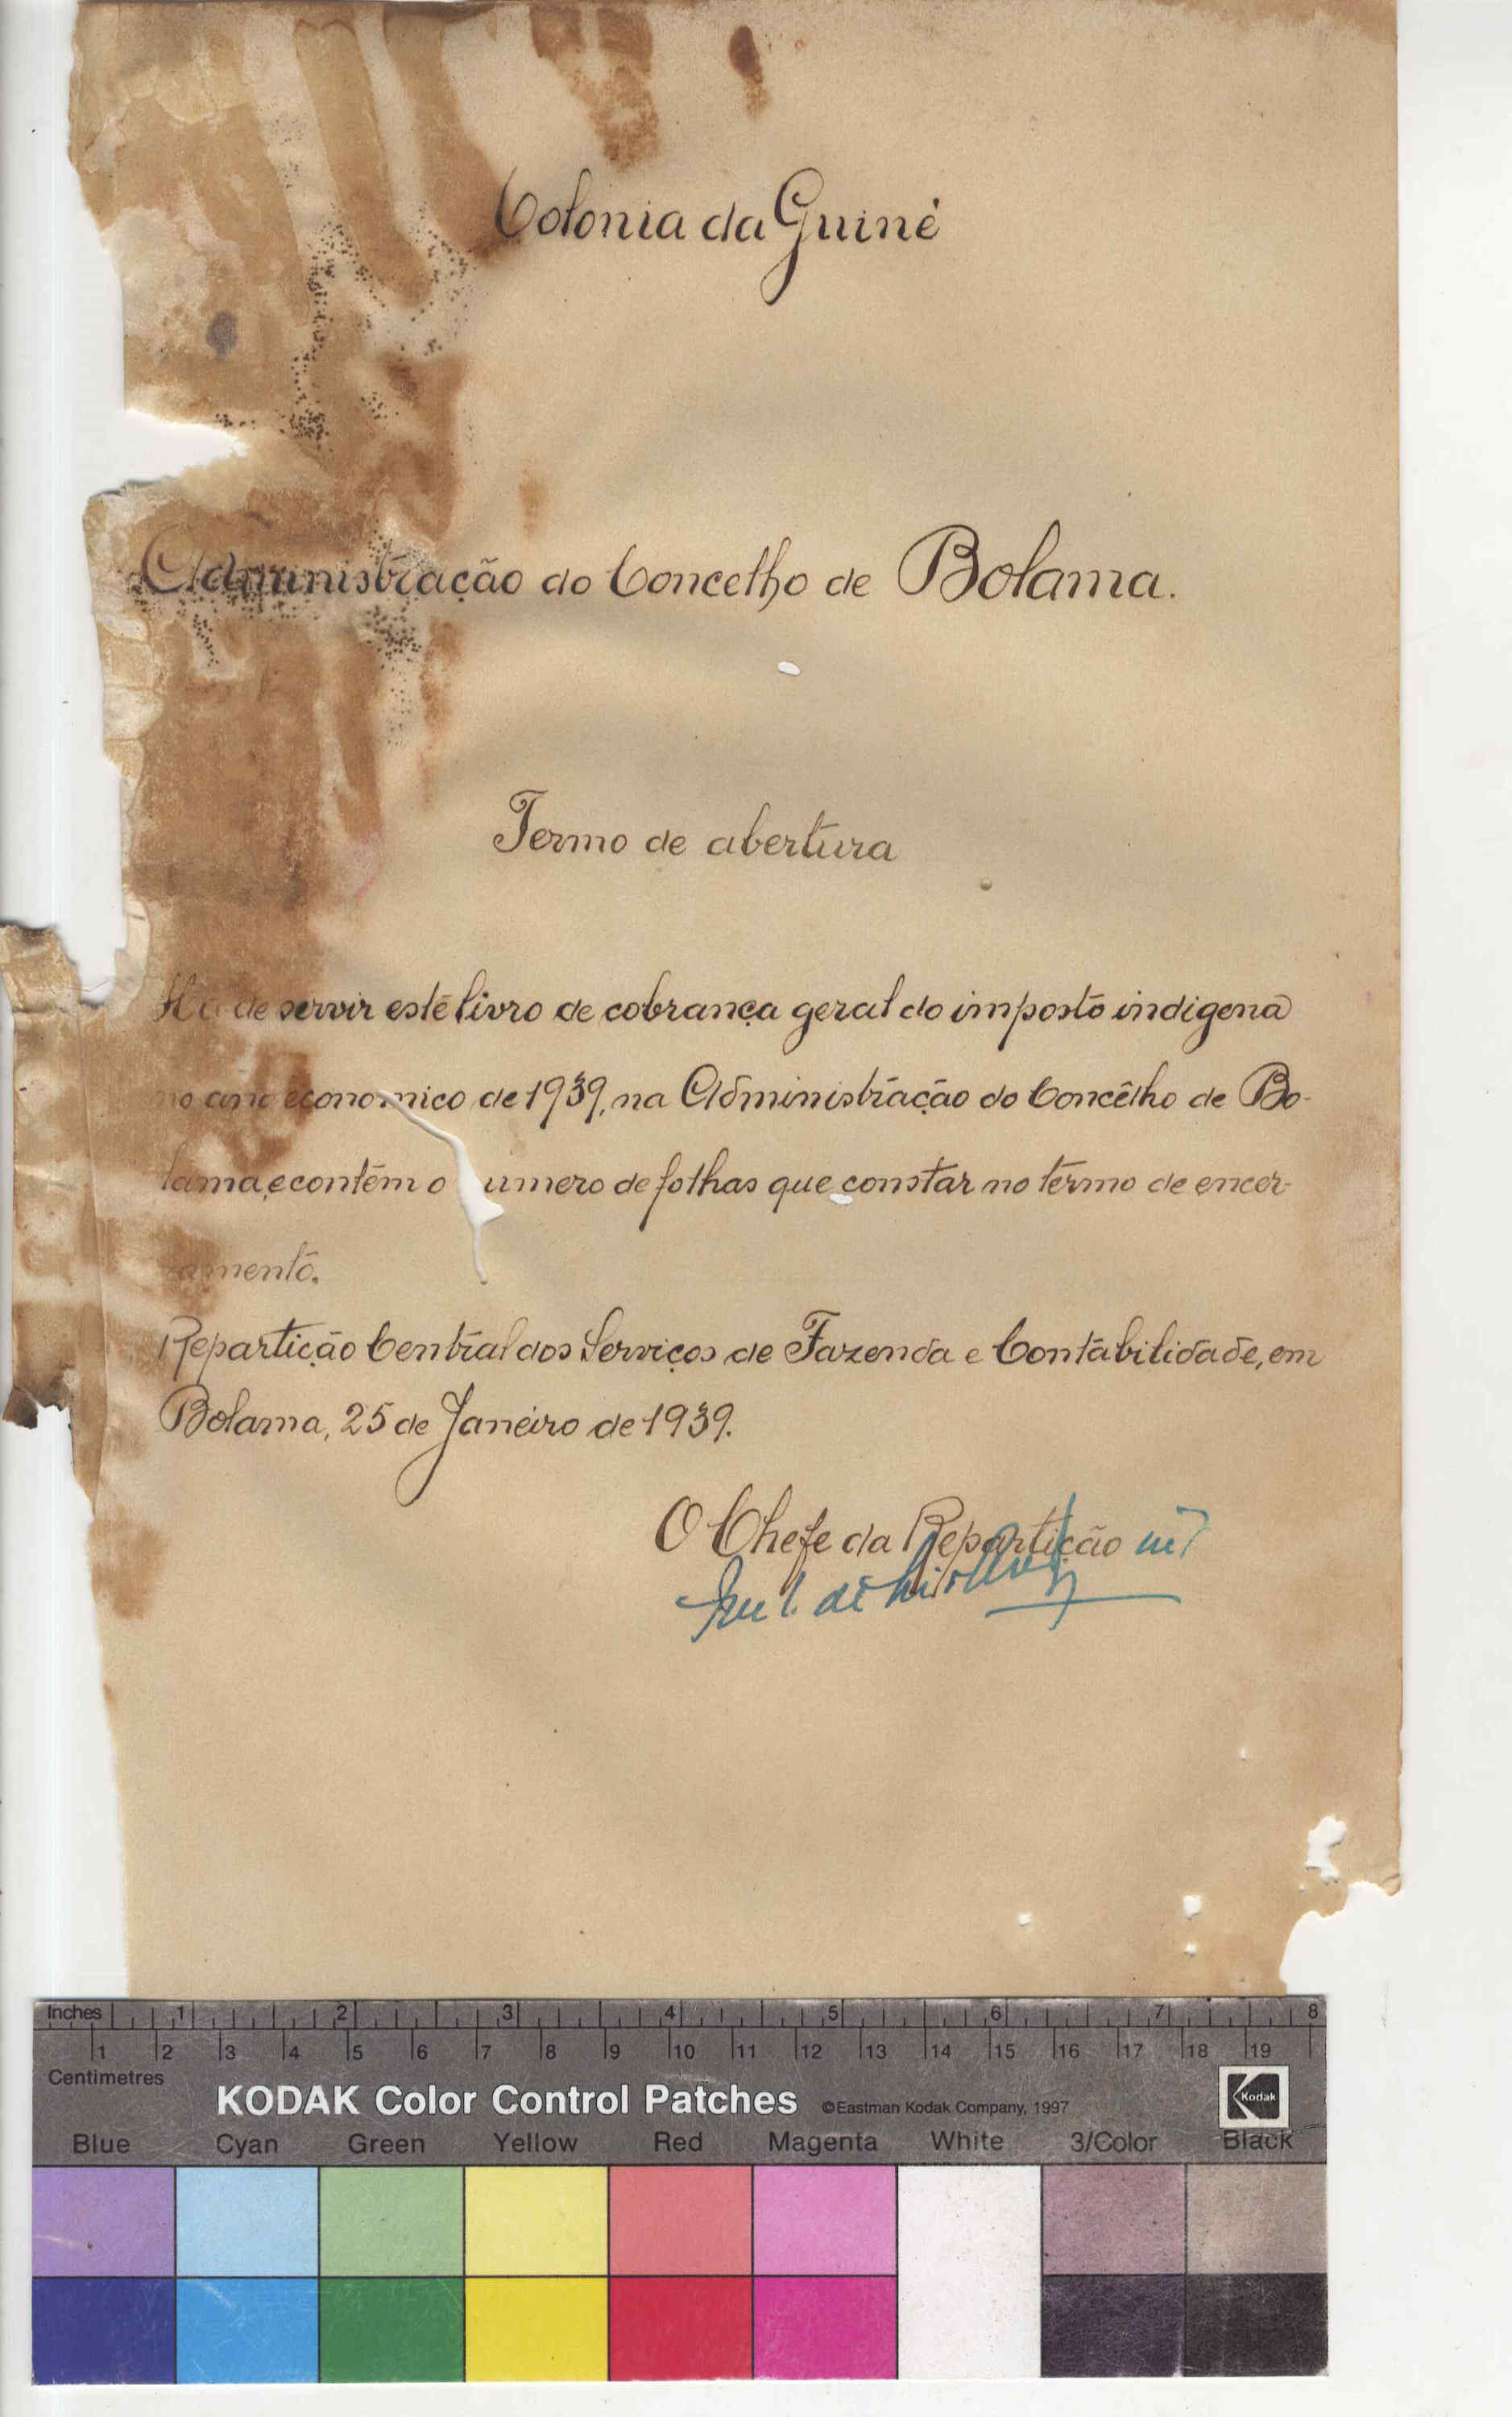 Colonia da Guiné
Administração do Concelho de Bolama.
Termo de abertura
Ha de servir este livro de cobrança geral do imposto indigena
no ano economico de 1939, na Administração do Concêlho de Bo-
lama, e contêm o umero de folhas que constar no têrmo de encer-
ramento.
Repartição Central dos Serviços de Fazenda e Contabilidade, em
Bolama, 25 de Janeiro de 1939.
O Chefe da Repartição intº
Inches 1 2 3 4 5 6 7 8
1 2 3 4 5 6 7 8 9 10 11 12 13 14 15 16 17 18 19
Centimetres
KODAK Color Control Patches ©Eastman Kodak Company, 1997 Kodak
Blue Cyan Green Yellow Red Magenta White 3/Color Black